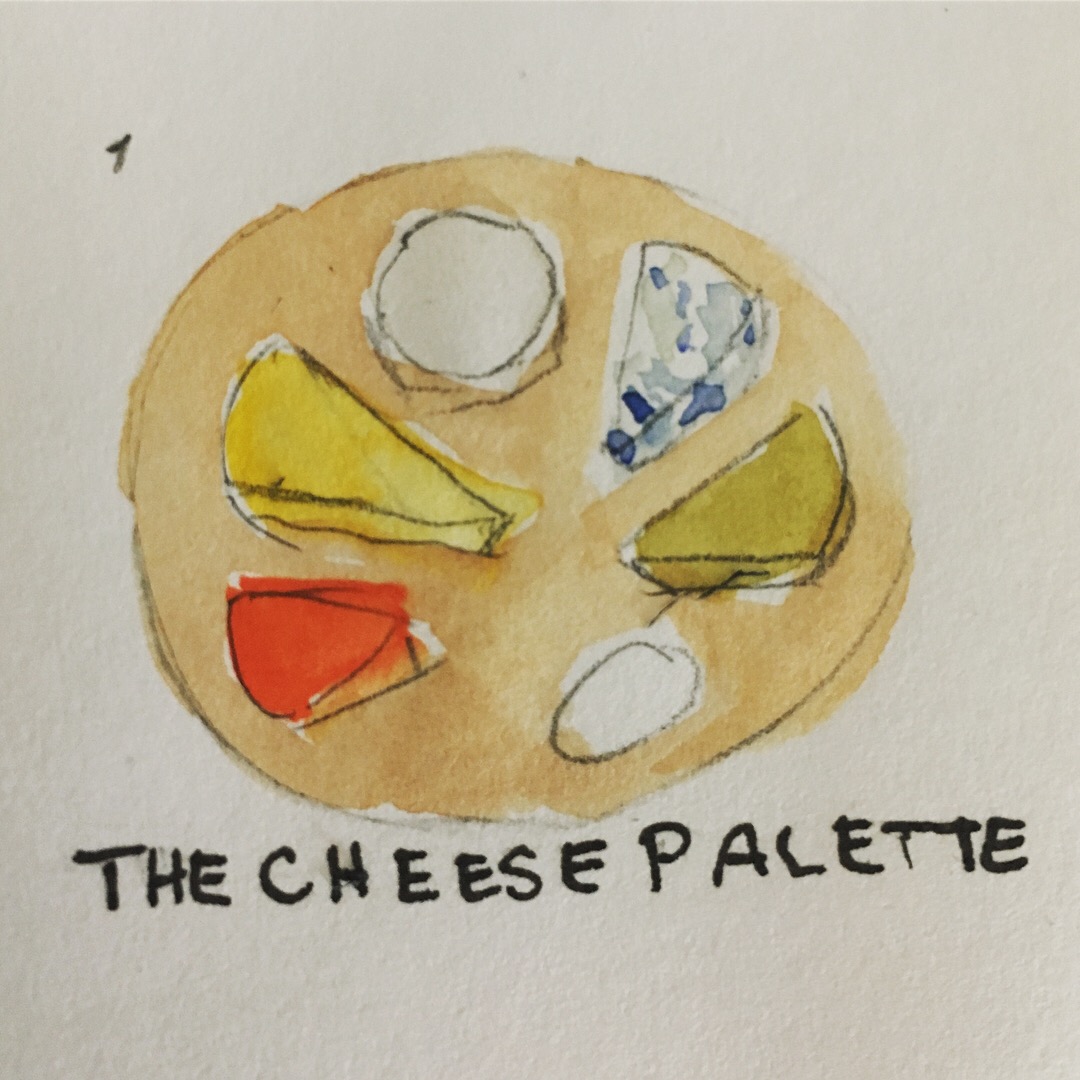 1
THE CHEESE PALETTE